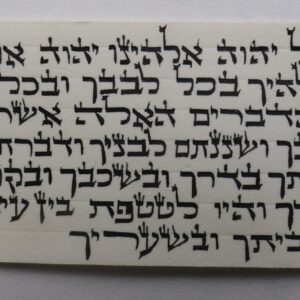 ל יהוה אלהינו יהוה א
להיך בכל לבבך ובכל
הדברים האלה אשר
ך ושננתם לבניך ודברת
תך בדרך ובשכבך ובקו
ך והיו לטטפת בין עי
ביתך ובשעריך